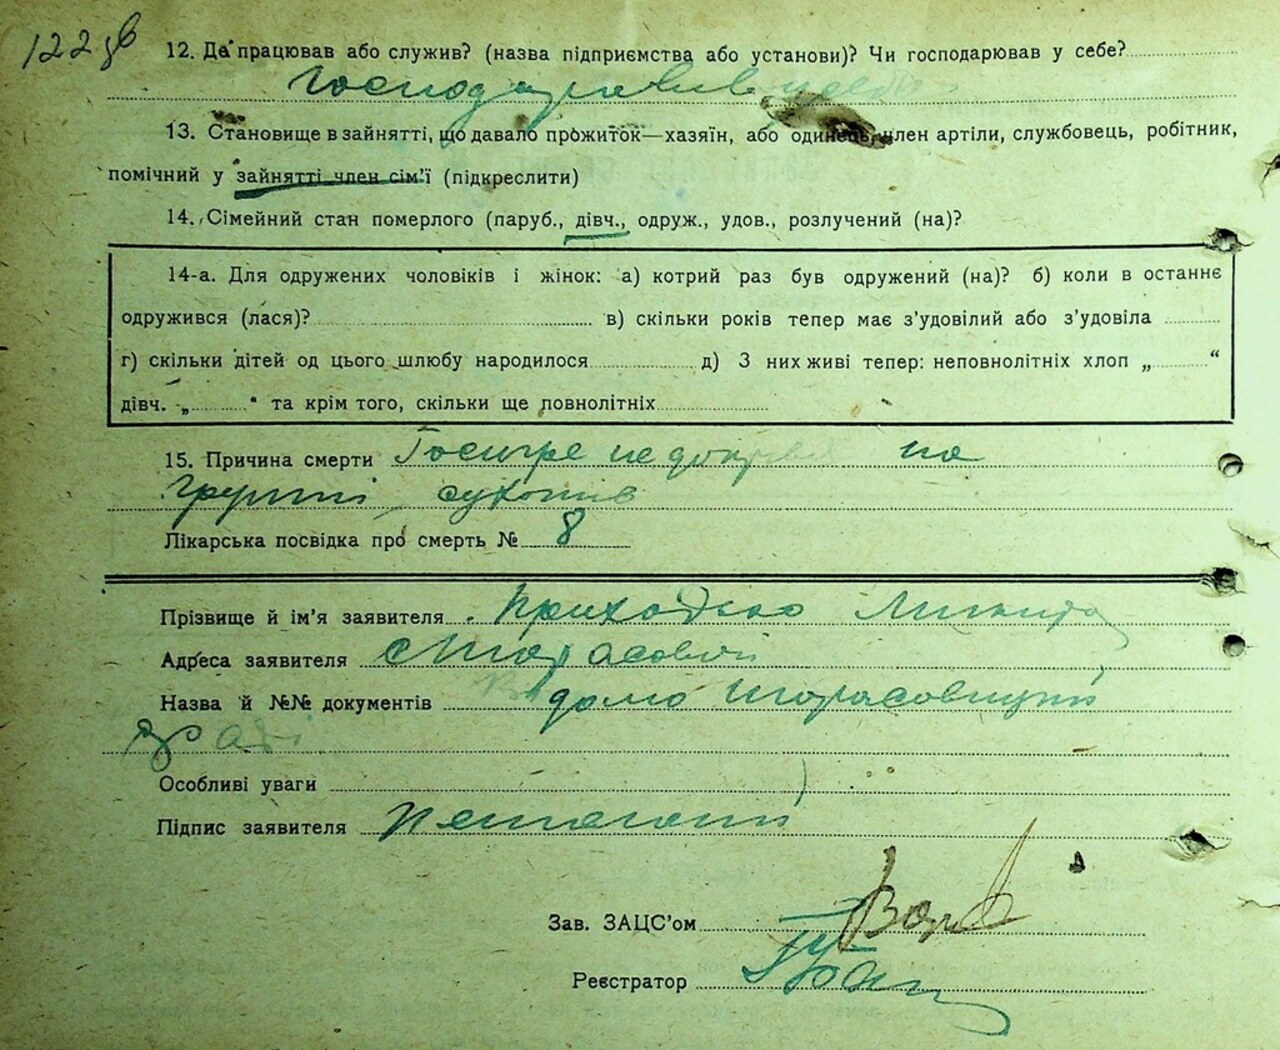 122 зв
12. Де працював або служив? (назва підприємства або установи)? Чи господарював у себе?
Господарював у себе
13. Становище в зайнятті, що давало прожиток—хазяїн, або одинець, член артіли, службовець, робітник,
помічний у зайнятті член сім'ї (підкреслити)
14. Сімейний стан померлого (паруб., дівч., одруж., удов., розлучений (на)?
14-а. Для одружених чоловіків і жінок: а) котрий раз був одружений (на)? б) коли в останнє
одружився (лася)? в) скільки років тепер має з'удовілий або з'удовіла
г) скільки дітей од цього шлюбу народилося д) З них живі тепер: неповнолітніх хлоп „ “
дівч. „ “ та крім того, скільки ще повнолітніх
15. Причина смерти Гостре недокрів'я на
грунті сухотів
Лікарська посвідка про смерть № 8
Прізвище й ім'я заявителя Приходько
Адреса заявителя с Тарасовки
Назва й №№ документів
Особливі уваги
Підпис заявителя
Зав. ЗАЦС'ом
Реєстратор